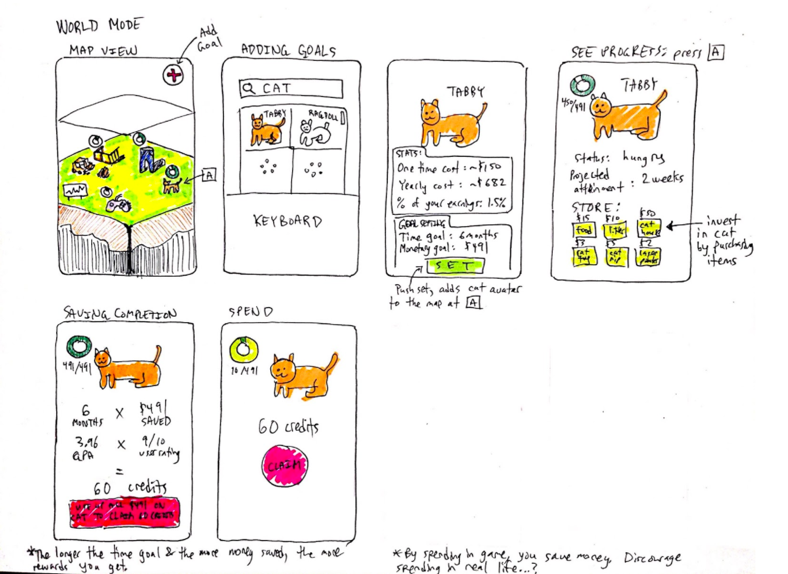 WORLD MODE
MAP VIEW
Add
Goal
A
ADDING GOALS
CAT
TABBY
RAGDOLL
KEYBOARD
TABBY
STATS:
One time cost: ~$150
Yearly cost: ~$682
% of your earnings: 1.5%
GOAL SETTING
Time goal: 6 months
Monetary goal: $491
SET
Push set, adds cat avatar
to the map at A
SEE PROGRESS: press A
TABBY
450/491
Status: hungry
Projected
attainment: 2 weeks
STORE:
$15 $10 $50
food litter cat
house
$3 $3 $2
cat
cat
nip
invest
in cat
by purchasing
items
SAVING COMPLETION
491/491
6 X $491
MONTHS SAVED
3.96 X 9/10
user rating
=
60 credits
USE ALL $491 ON
CAT TO CLAIM 60 CREDITS
SPEND
10/491
60 credits
CLAIM
*The longer the time goal & the more money saved, the more
rewards you get.
*By spending in game, you save money. Discourage
spending in real life...?